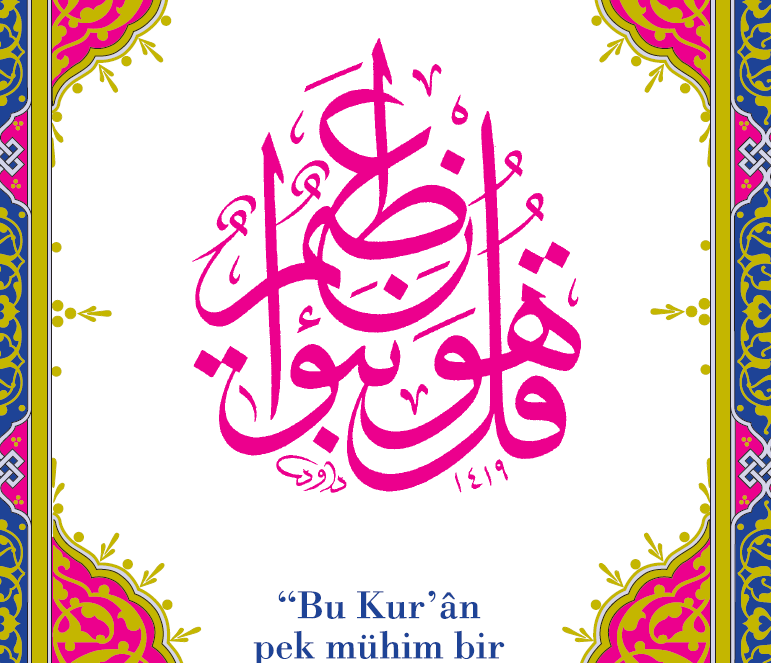 قُلْ هُوَ نَبَؤٌا عَظِيمٌ
داود ١٤١٩
“Bu Kur’ân
pek mühim bir